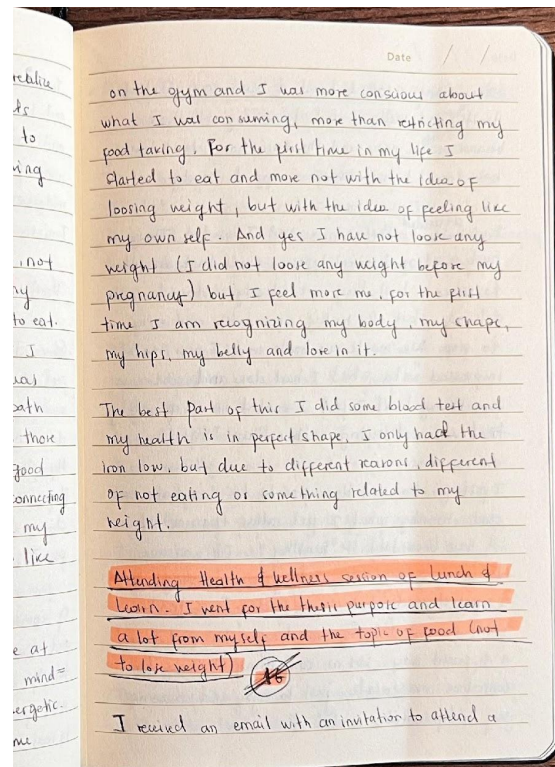 realize
ts
to
ving
not
my
to eat.
I
ual
path
those
good
connecting
my
like
e at
mind=
ergetic.
me
Date / /
on the gym and I was more consuous about
what I was consuming, more than restricting my
food taking. For the first time in my life I
started to eat and move not with the idea of
loosing weight, but with the idea of feeling like
my own self. And yes I have not loose any
weight (I did not loose any weight before my
pregnancy) but I feel more me, for the first
time I am recognizing my body, my shape,
my hips, my belly and love in it.
The best part of this I did some blood test and
my health is in perfect shape. I only had the
iron low, but due to different reasons, different
of not eating or something related to my
weight.
Attending Health & Wellness session of Lunch &
Learn. I went for the thesis purpose and learn
a lot from myself and the topic of food (not
to lose weight)
16
I received an email with an invitation to attend a